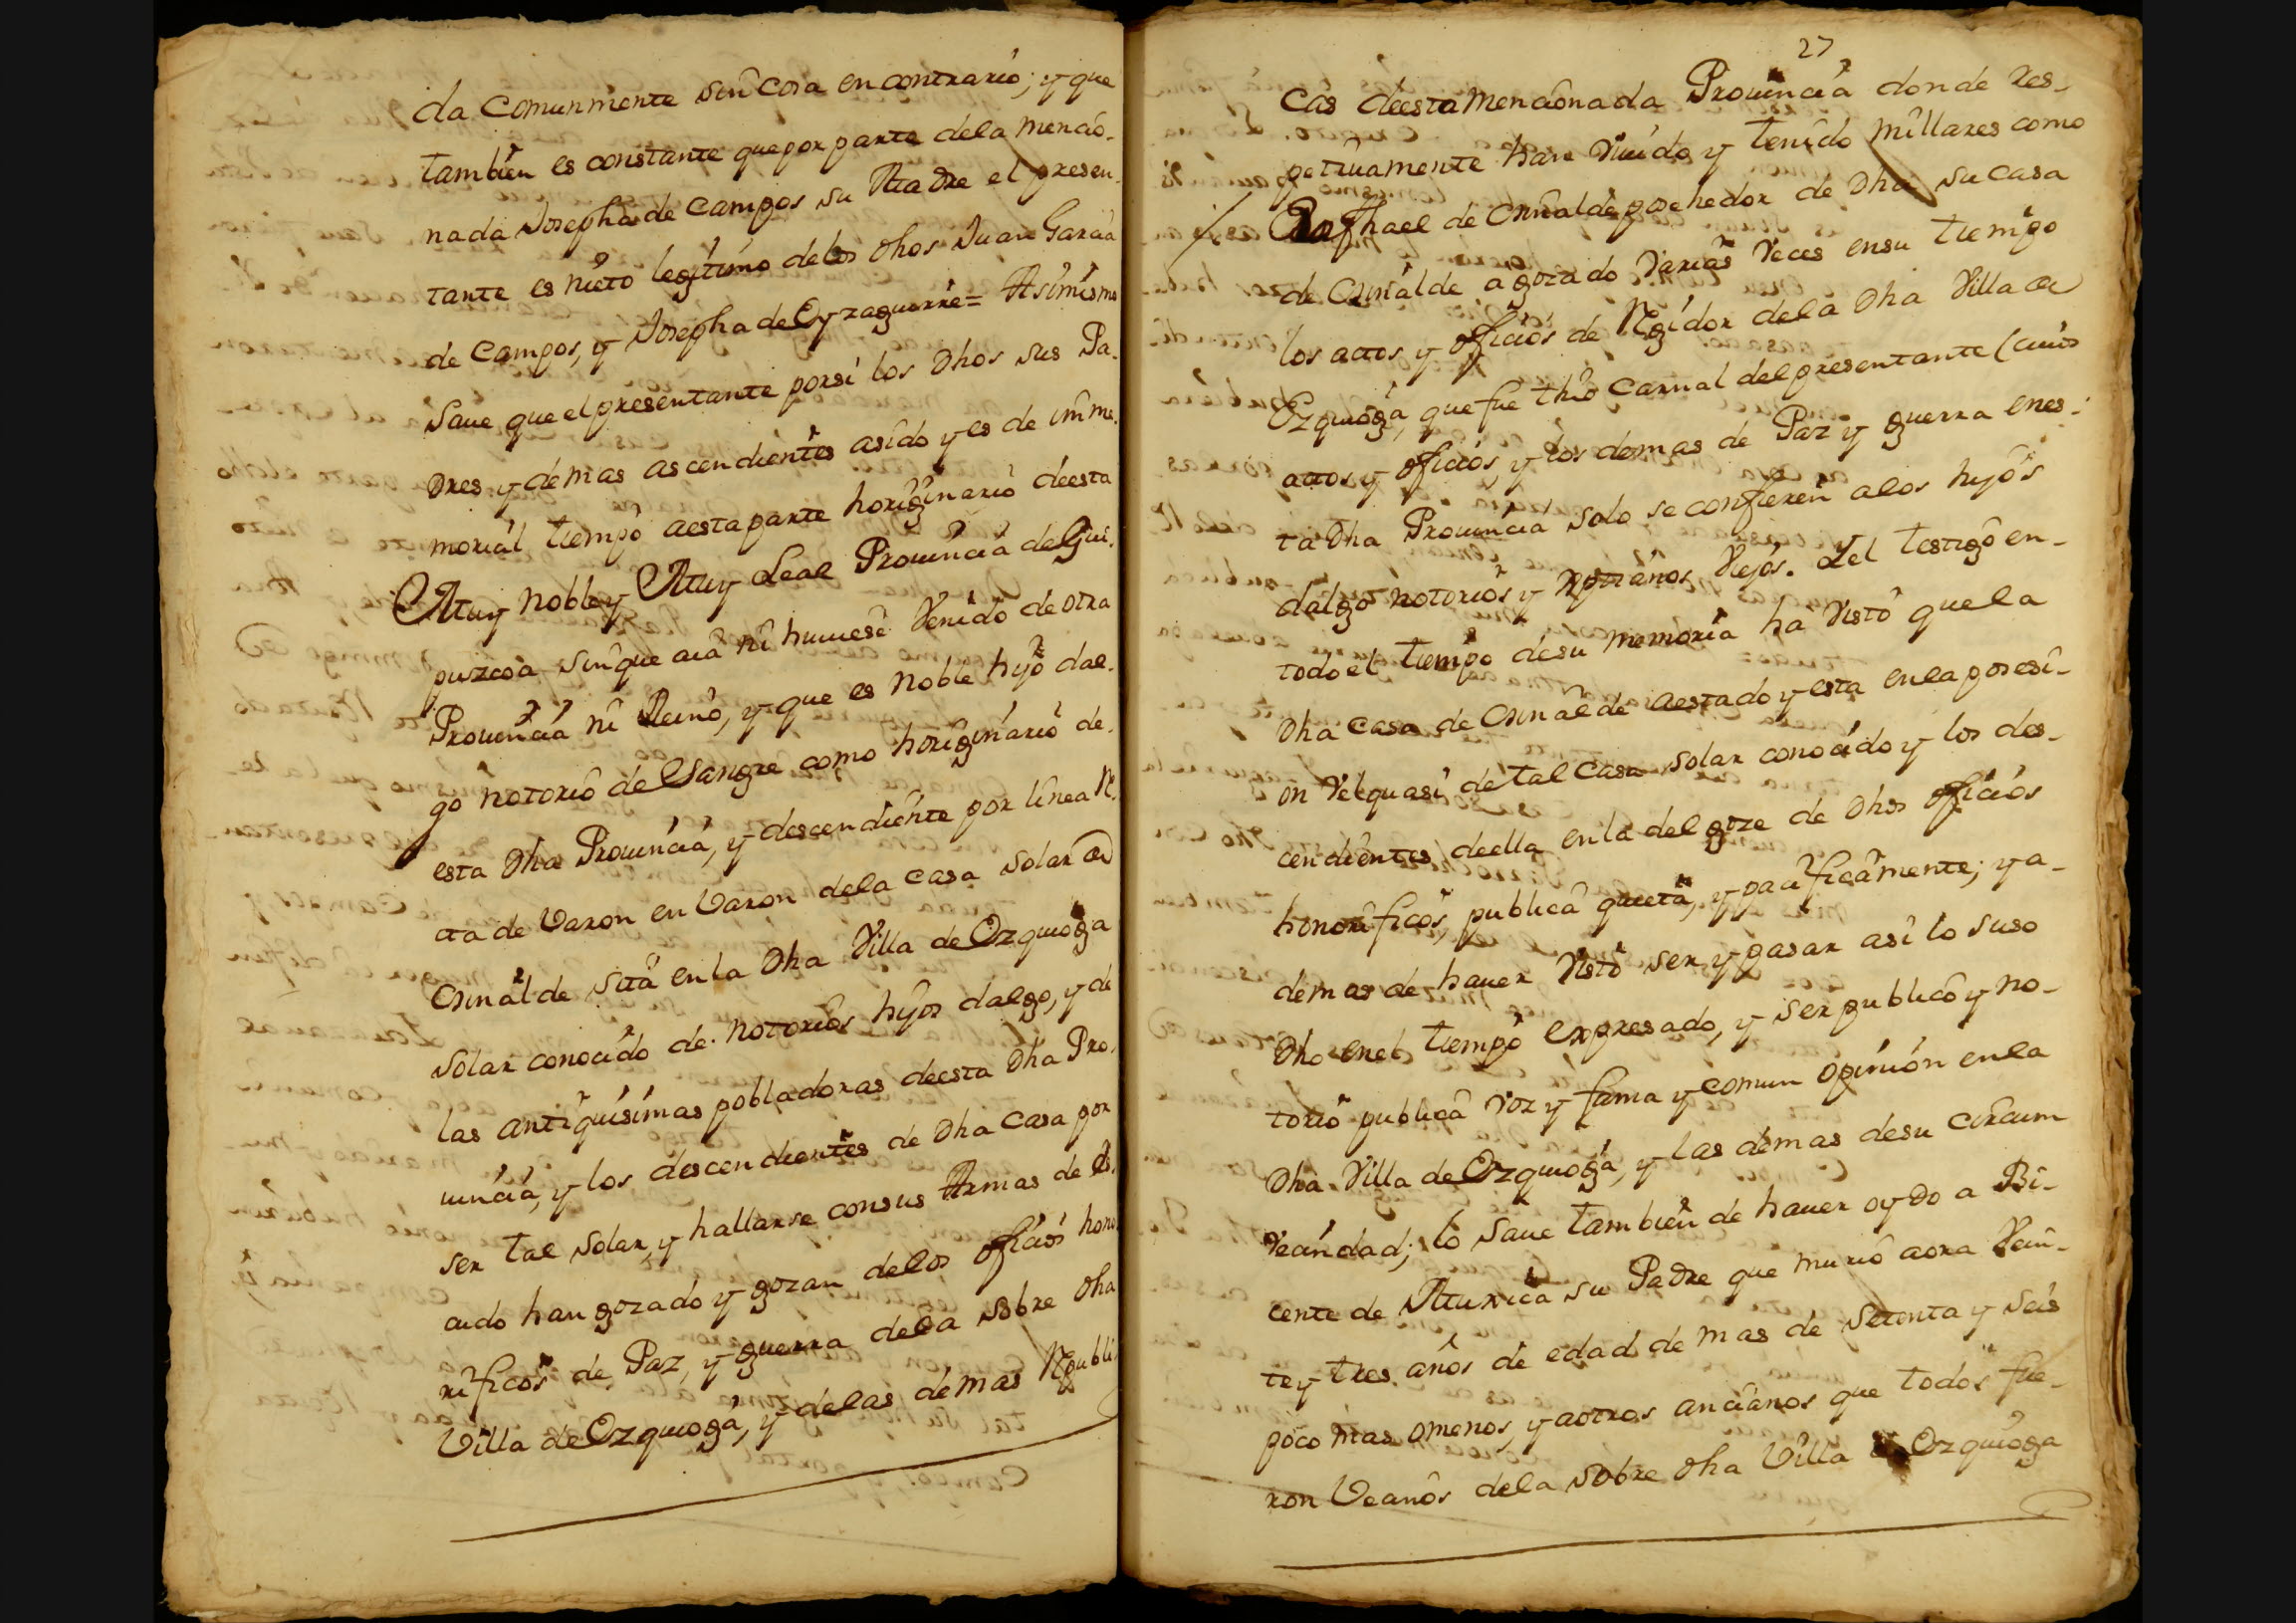 da comunmente sin cosa en contrario; y que
tambien es constante que por parte dela mencio-
nada Josepha de Campos su Madre el presen-
tante es nieto legitimo delos dhos Juan Garcia
de Campos, y Josepha de Oyzaguirre = Asimismo
Saue que el presentante por si los Dhos sus Pa-
dres y demas ascendientes asido y es de imme-
morial tiempo aesta parte horiginario deesta
Muy noble y Muy Leal Prouincia de Gui-
puzcoa sin que aia ni huuiese Venido de otra
Prouincia ni Reino, y que es Noble hijo dal-
go notorio de Sangre como horiginario de-
esta Dha Prouincia, y descendiente por linea R.
cta de Varon en Varon dela casa solar de
Orinalde sita en la Dha Villa de Ozquioga
solar conocido de notorios hijos dalgo, y de
las antiquisimas pobladoras deesta Dha Pro-
uincia, y los descendientes de Dha Casa por
ser tal solar, y hallarse con sus Armas de Es-
cudo han gozado y gozan delos oficios hono-
rificos de Paz, y guerra dela sobre dha
Villa de Ozquioga, y delas demas Republi-
27
cas deesta mencionada Prouincia donde res-
petiuamente han Viuido y tenido millares como
Raphael de Orinalde posehedor de Dha su casa
de Orinalde a gozado Varias Veces en su tiempo
los actos y oficios de Regidor dela Dha Villa de
Ezquioga, que fue thio carnal del presentante (cuios
actos y oficios, y los demas de Paz y guerra enes-
ta Dha Prouincia solo se confieren alos hijos
dalgo notorios y xptianos Viejos. Y el testigo en-
todo el tiempo desu memoria ha Visto que la
Dha casa de Orinalde aestado y esta en la posesi-
on Velquasi de tal casa solar conocido y los des-
cendientes deella en la del goze de Dhos oficios
honorificos, publica quieta, y pacificamente; y a-
demas de hauer Visto ser, y pasar asi lo suso
Dho enel tiempo expresado, y ser publico y no-
torio publica Voz y fama y comun opinion en la
Dha Villa de Ozquioga, y las demas desu circum
Vecindad; lo saue tambien de hauer oydo a Bi-
cente de Muxica su Padre que murio aora Vein-
te y tres años de edad de mas de setenta y seis
poco mas omenos, y aotros ancianos que todos fue-
ron Vecinos dela sobre dha Villa de Ozquioga